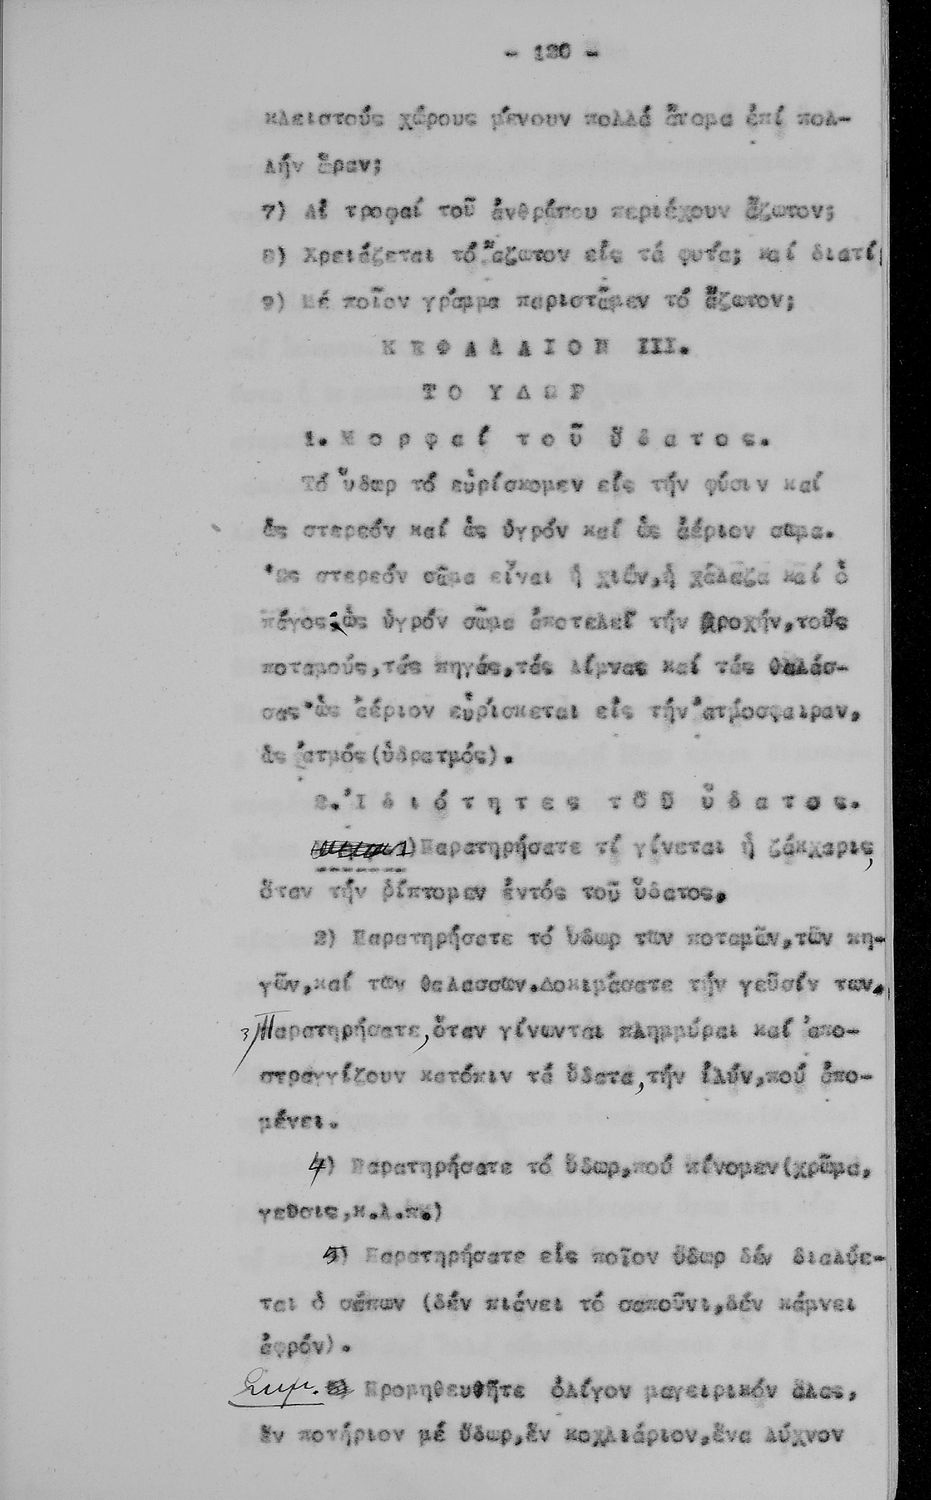 - 120 -
κλειστούς χώρους μένουν πολλά ἄτομα ἐπί πολ-
λήν ὥραν;
7) Αἱ τροφαί τοῦ ἀνθρώπου περιέχουν ἄζωτον;
8) Χρειάζεται τό ἄζωτον εἰς τά φυτά; καί διατί;
9) Μέ ποῖον γράμμα παριστῶμεν τό ἄζωτον;
Κ Ε Φ Α Λ Α Ι Ο Ν III.
Τ Ο Υ Δ Ω Ρ
1. Μ ο ρ φ α ί τ ο ῦ ὕ δ α τ ο ς.
Τό ὕδωρ τό εὑρίσκομεν εἰς τήν φύσιν καί
ὡς στερεόν καί ὡς ὑγρόν καί ὡς ἀέριον σῶμα.
Ὡς στερεόν σῶμα εἶναι ἡ χιών, ἡ χάλαζα καί ὁ
πάγος· ὡς ὑγρόν σῶμα ἀποτελεῖ τήν βροχήν, τούς
ποταμούς, τάς πηγάς, τάς λίμνας καί τάς θαλάσ-
σας· ὡς ἀέριον εὑρίσκεται εἰς τήν ἀτμόσφαιραν,
ὡς ἀτμός (ὑδρατμός).
2. Ἰ δ ι ό τ η τ ε ς τ ο ῦ ὕ δ α τ ο ς.
1) Παρατηρήσατε τί γίνεται ἡ ζάκχαρις,
ὅταν τήν ρίπτομεν ἐντός τοῦ ὕδατος.
2) Παρατηρήσατε τό ὕδωρ τῶν ποταμῶν, τῶν πη-
γῶν, καί τῶν θαλασσῶν. Δοκιμάσατε τήν γεῦσίν των.
3) Παρατηρήσατε, ὅταν γίνωνται πλημμύραι καί ἀπο-
στραγγίζουν κατόπιν τά ὕδατα, τήν ἰλύν, πού ἀπο-
μένει.
4) Παρατηρήσατε τό ὕδωρ, πού πίνομεν (χρῶμα,
γεῦσις, κ.λ.π.)
5) Παρατηρήσατε εἰς ποῖον ὕδωρ δέν διαλύε-
ται ὁ σάπων (δέν πιάνει τό σαποῦνι, δέν κάμνει
ἀφρόν).
Σημ. Προμηθευθῆτε ὀλίγον μαγειρικόν ἅλας,
ἕν ποτήριον μέ ὕδωρ, ἕν κοχλιάριον, ἕνα λύχνον